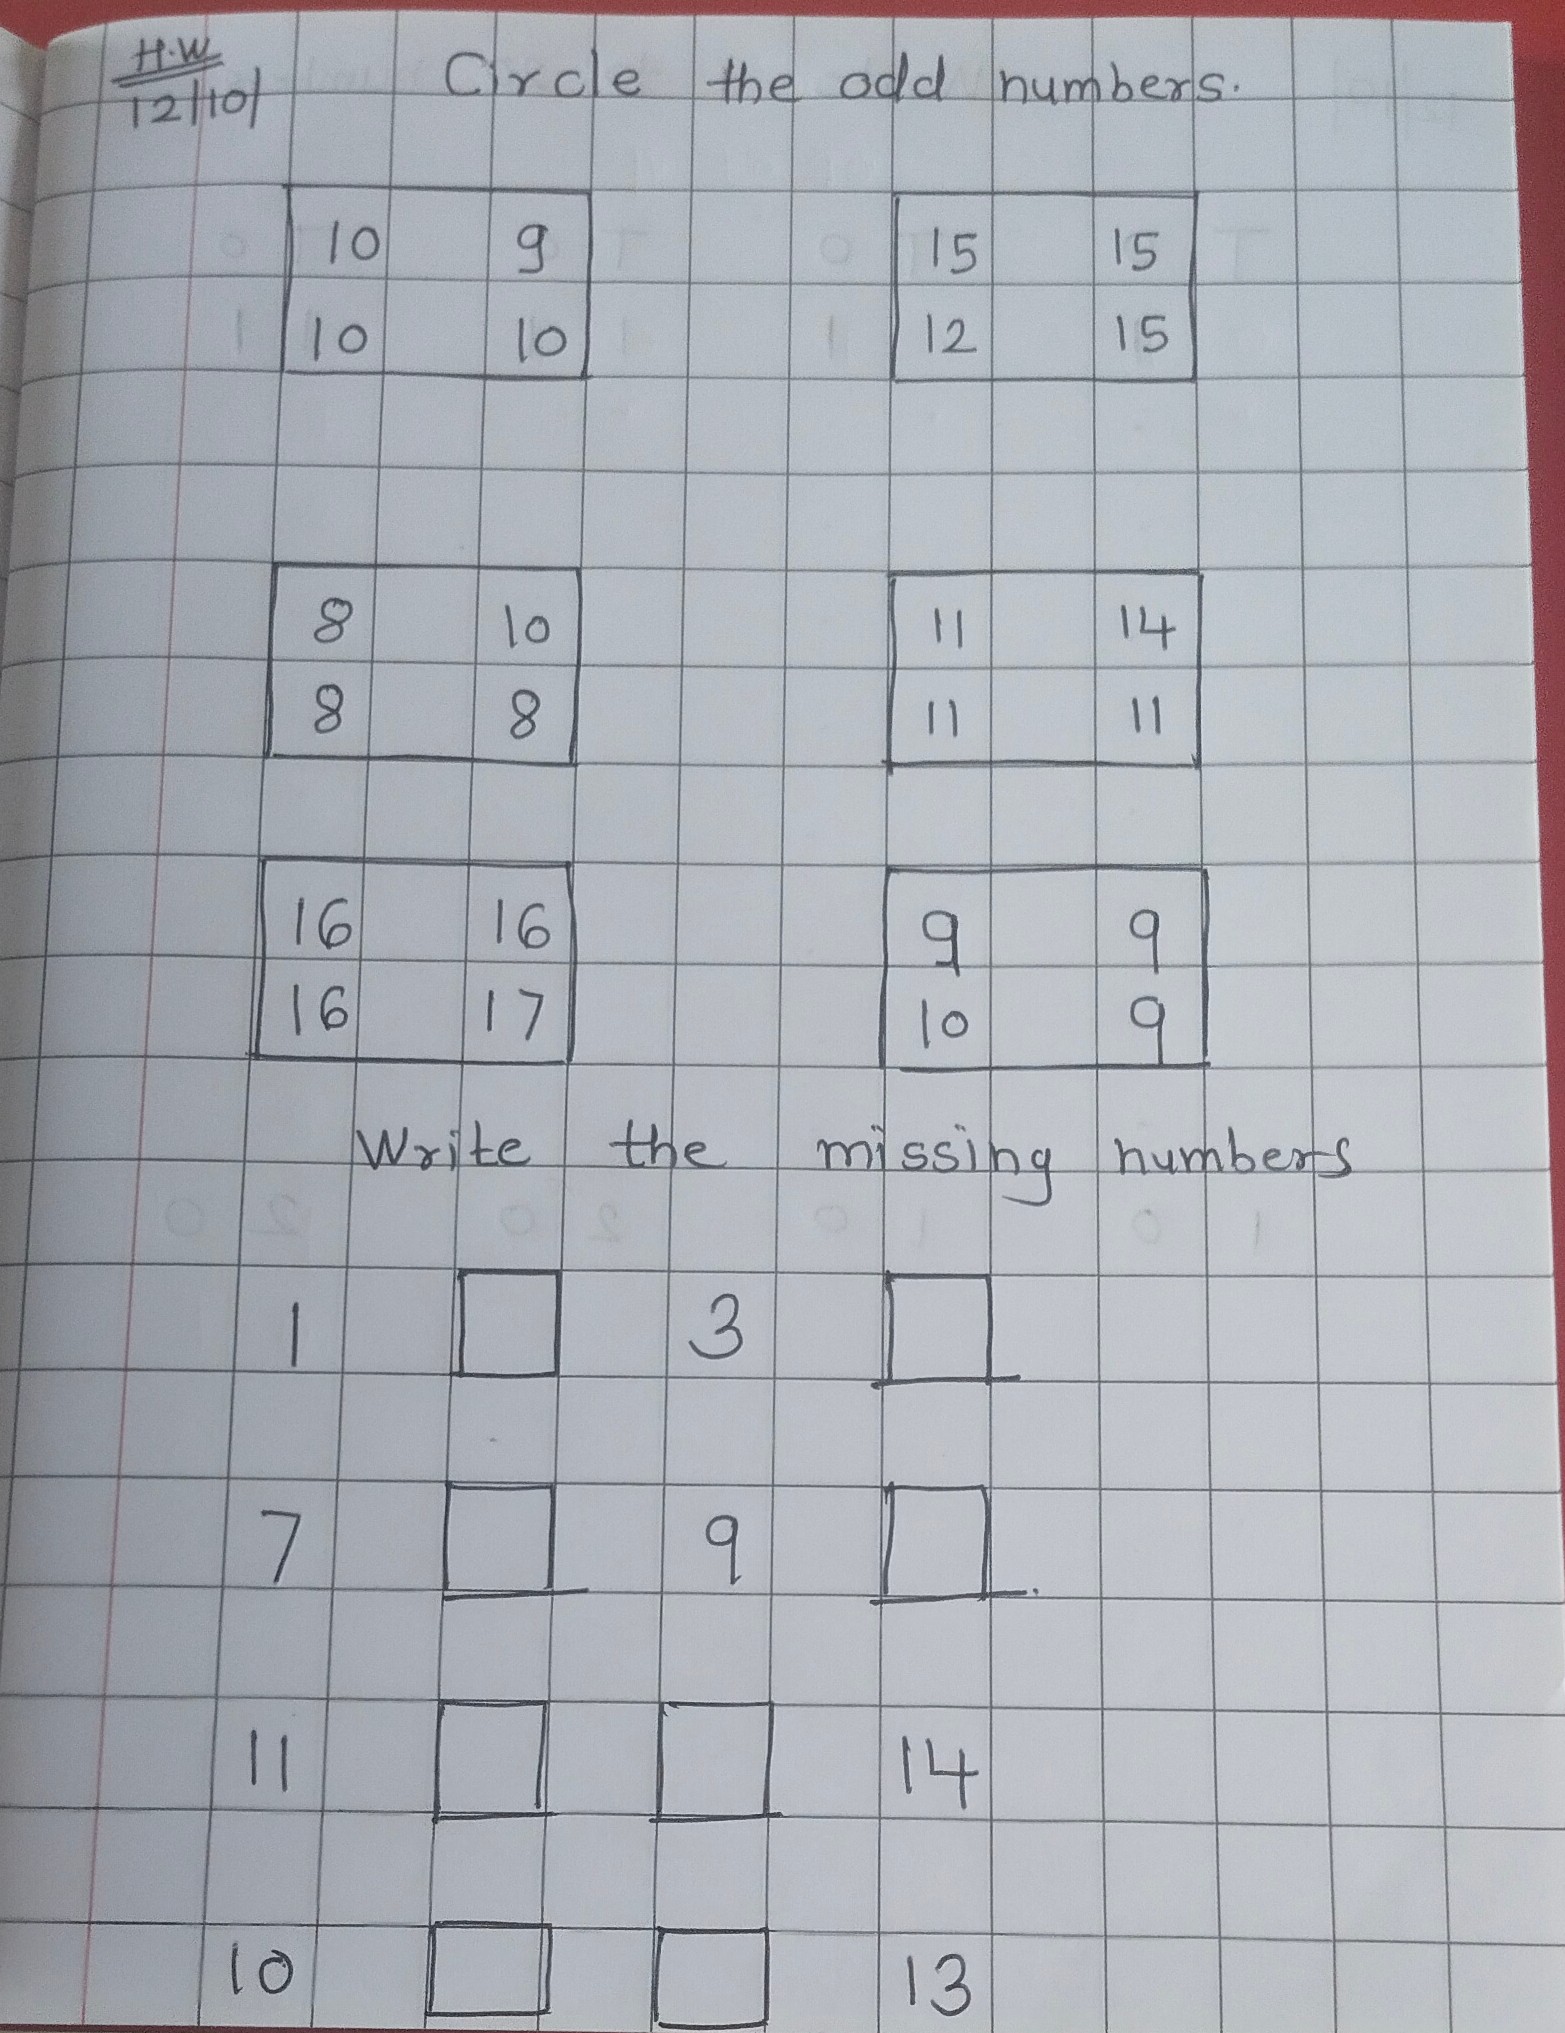 H.W Circle the odd numbers.
12/10/
10 9 15 15
10 10 12 15
8 10 11 14
8 8 11 11
16 16 9 9
16 17 10 9
Write the missing numbers
1 3
7 9
11 14
10 13